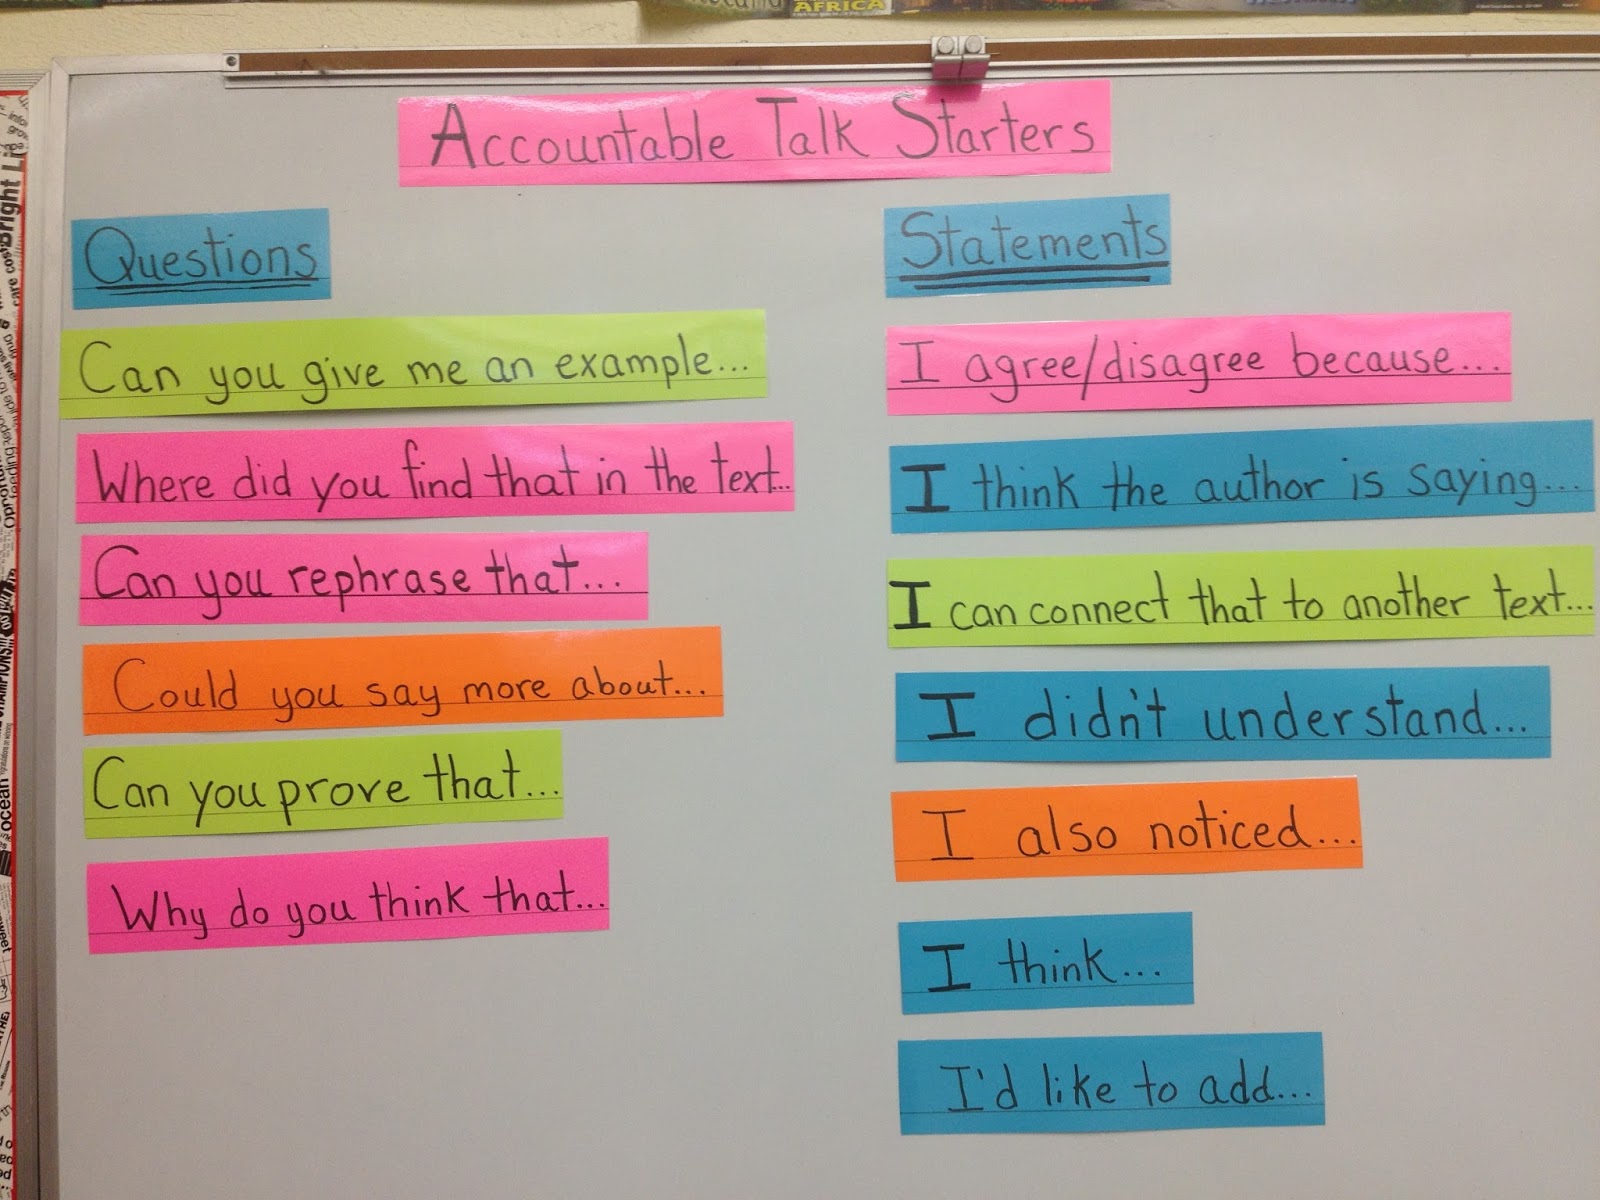 AFRICA
Accountable Talk Starters
Questions
Can you give me an example...
Where did you find that in the text..
Can you rephrase that...
Could you say more about...
Can you prove that...
Why do you think that...
Statements
I agree/disagree because...
I think the author is saying...
I can connect that to another text...
I didn't understand...
I also noticed...
I think...
I'd like to add...
Bright
ocean